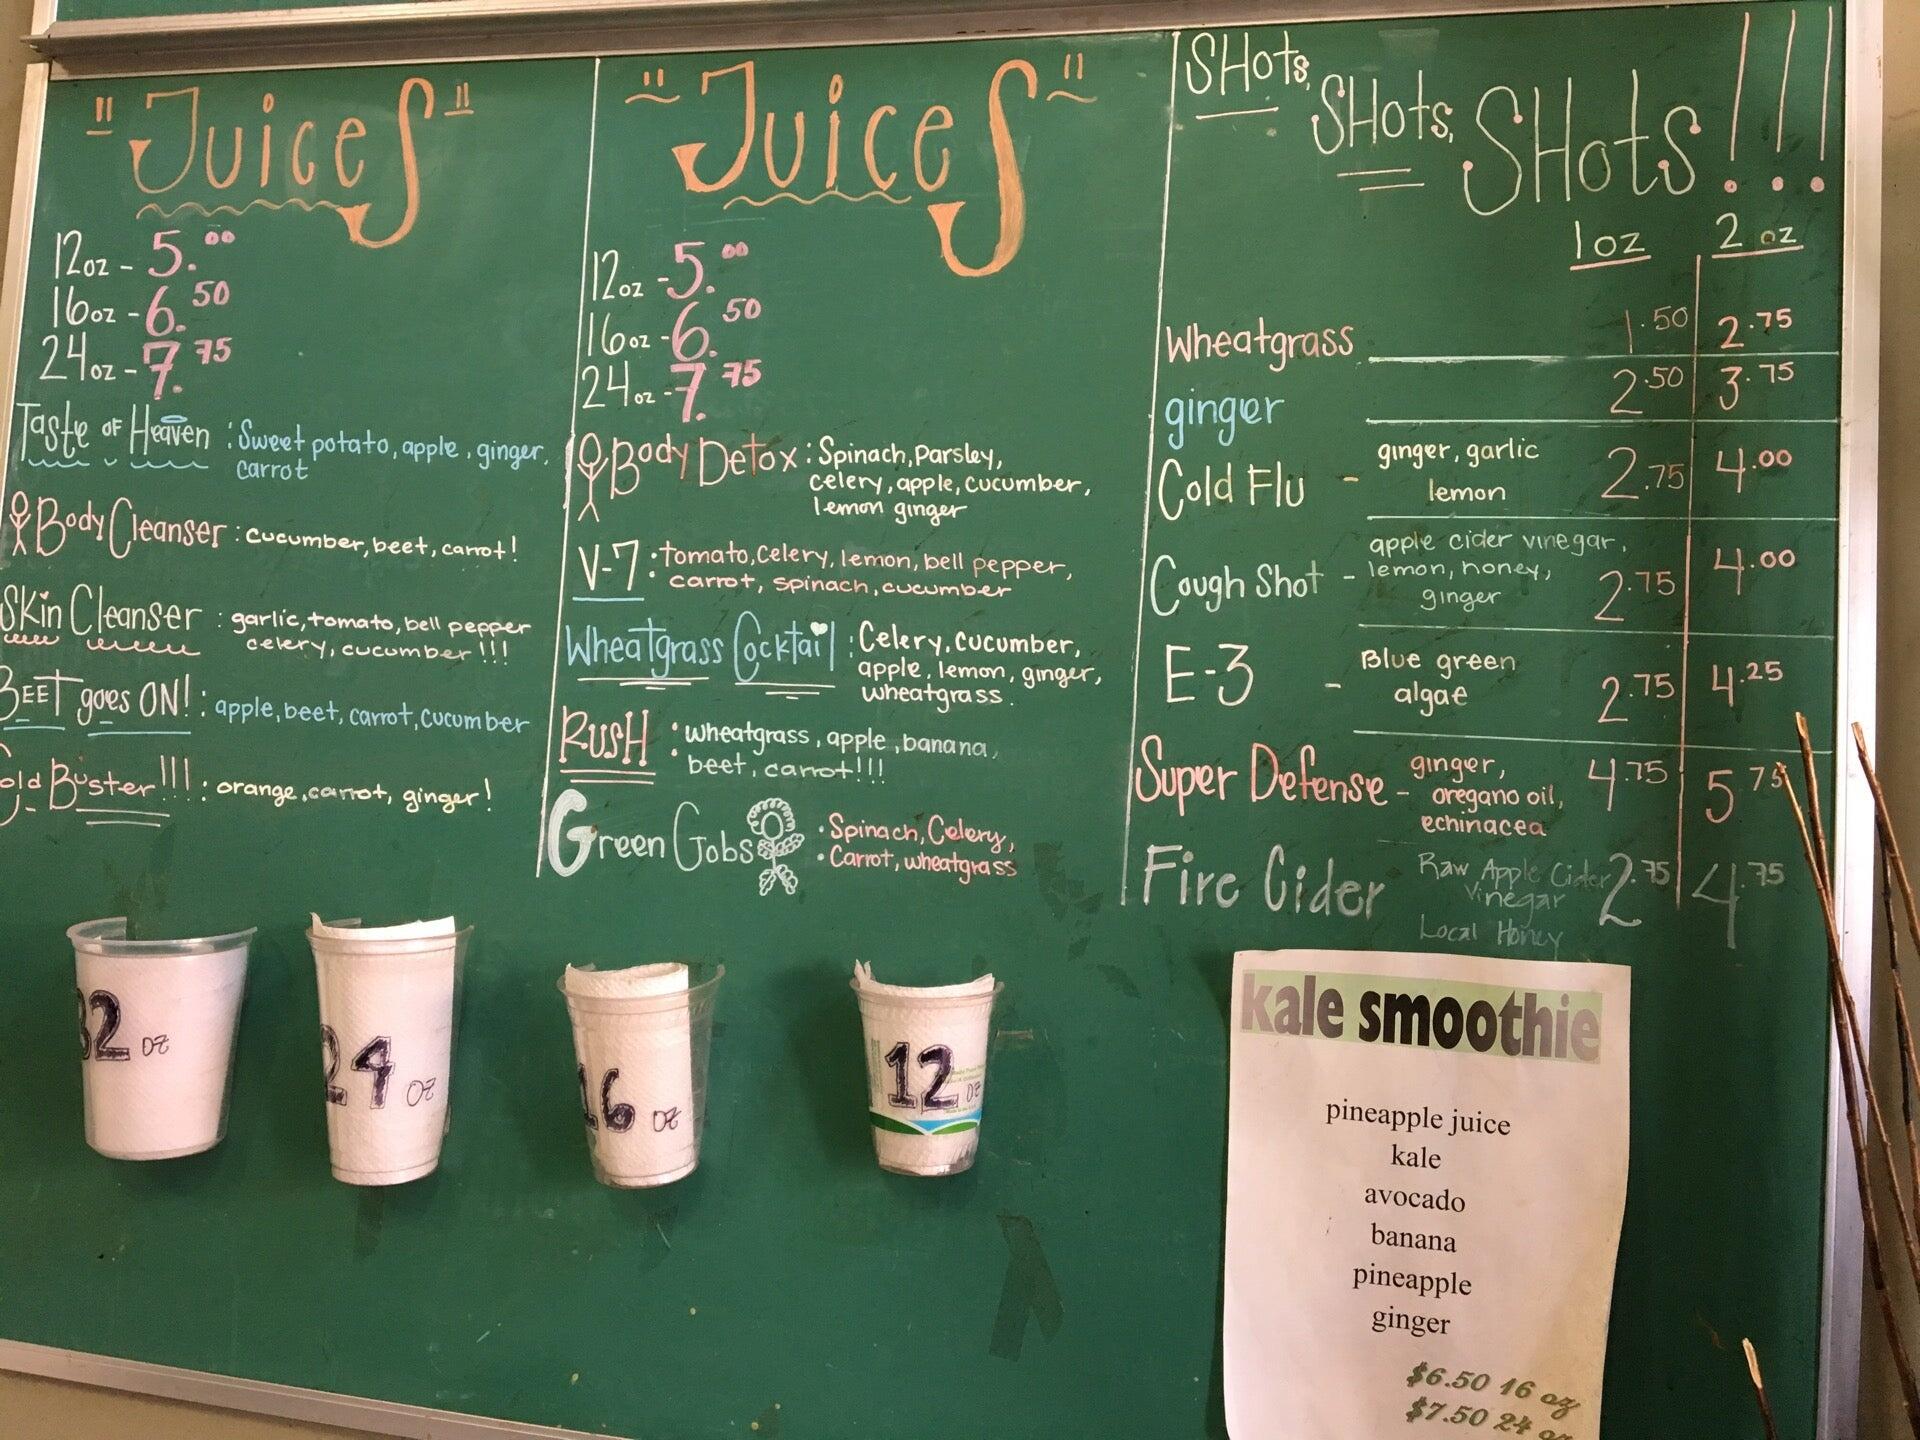 "Juices"
12oz - 5.00
16oz - 6.50
24oz - 7.75
Taste of Heaven : Sweet potato, apple, ginger,
carrot
Body Cleanser : cucumber, beet, carrot!
Skin Cleanser : garlic, tomato, bell pepper
celery, cucumber!!!
BEET goes ON! : apple, beet, carrot, cucumber
Buster!!! : orange, carrot, ginger!
"Juices"
12oz - 5.00
16oz - 6.50
24oz - 7.75
Body Detox : Spinach, Parsley,
celery, apple, cucumber,
lemon ginger
V-7 : tomato, celery, lemon, bell pepper,
carrot, spinach, cucumber
Wheatgrass Cocktail : Celery, cucumber,
apple, lemon, ginger,
wheatgrass.
RUSH : wheatgrass, apple, banana,
beet, carrot!!!
Green Gobs • Spinach, Celery,
• Carrot, wheatgrass
SHots, SHots, SHots!!!
1oz 2 oz
Wheatgrass 1.50 2.75
ginger 2.50 3.75
Cold Flu - ginger, garlic
lemon 2.75 4.00
Cough Shot - apple cider vinegar,
lemon, honey,
ginger 2.75 4.00
E-3 - Blue green
algae 2.75 4.25
Super Defense - ginger,
oregano oil,
echinacea 4.75 5.75
Fire Cider Raw Apple Cider
Vinegar
Local Honey 2.75 4.75
32 oz
24 oz
16 oz
12 oz
kale smoothie
pineapple juice
kale
avocado
banana
pineapple
ginger
$6.50 16 oz
$7.50 24 oz